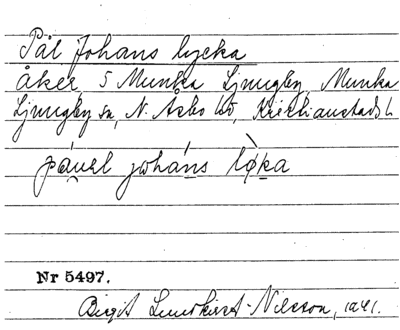 Pål Johans lycka
åker, 5 Munka Ljungby, Munka
Ljungby sn, N. Åsbo hd, Kristianstads l.
pável johàns lỳka
Nr 5497.
Birgit Lundkvist-Nilsson, 1941.